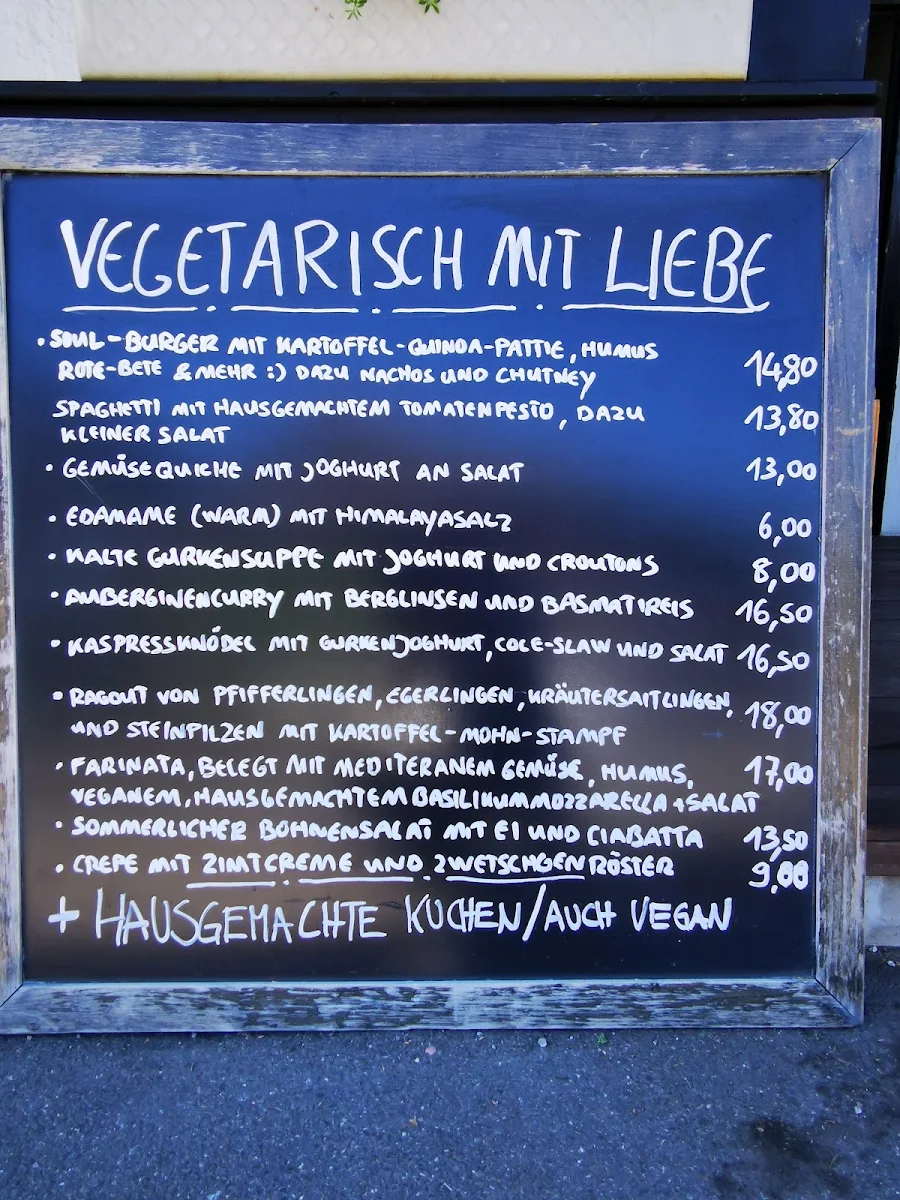 VEGETARISCH MIT LIEBE
• SOUL-BURGER MIT KARTOFFEL-QUINOA-PATTIE, HUMUS
ROTE-BETE & MEHR :) DAZU NACHOS UND CHUTNEY 14,80
SPAGHETTI MIT HAUSGEMACHTEM TOMATENPESTO, DAZU 13,80
KLEINER SALAT
• GEMÜSEQUICHE MIT JOGHURT AN SALAT 13,00
• EDAMAME (WARM) MIT HIMALAYASALZ 6,00
• KALTE GURKENSUPPE MIT JOGHURT UND CROUTONS 8,00
• AUBERGINENCURRY MIT BERGLINSEN UND BASMATIREIS 16,50
• KASPRESSKNÖDEL MIT GURKENJOGHURT, COLE-SLAW UND SALAT 16,50
• RAGOUT VON PFIFFERLINGEN, EGERLINGEN, KRÄUTERSAITLINGEN, 18,00
UND STEINPILZEN MIT KARTOFFEL-MOHN-STAMPF
• FARINATA, BELEGT MIT MEDITERANEM GEMÜSE, HUMUS, 17,00
VEGANEM, HAUSGEMACHTEM BASILIKUMMOZZARELLA + SALAT
• SOMMERLICHER BOHNENSALAT MIT EI UND CIABATTA 13,50
• CREPE MIT ZIMTCREME UND ZWETSCHGENRÖSTER 9,00
+ HAUSGEMACHTE KUCHEN/AUCH VEGAN